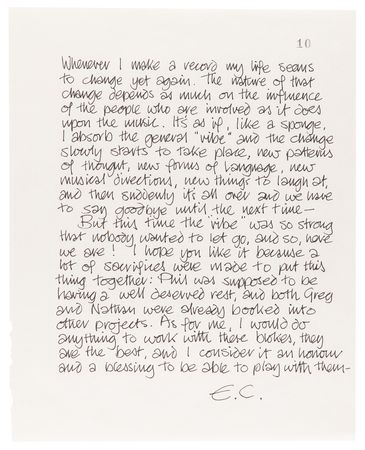 10
Whenever I make a record my life seems
to change yet again. The nature of that
change depends as much on the influence
of the people who are involved as it does
upon the music. It's as if, like a sponge,
I absorb the general "vibe" and the change
slowly starts to take place, new patterns
of thought, new forms of language, new
musical directions, new things to laugh at,
and then suddenly it's all over and we have
to say goodbye until the next time—
But this time the 'vibe' was so strong
that nobody wanted to let go, and so, here
we are! I hope you like it because a
lot of sacrifices were made to put this
thing together: Phil was supposed to be
having a well deserved rest, and both Greg
and Nathan were already booked into
other projects. As for me, I would do
anything to work with these blokes, they
are the best, and I consider it an honour
and a blessing to be able to play with them—
E.C.